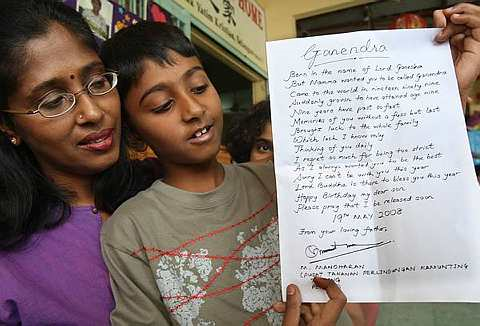 HOME
Ganendra
Born in the name of Lord Ganesha
But Mamma wanted you to be called Ganendra
Came to this world in nineteen ninety nine
Suddenly growse to have attained age nine
Nine years have past so fast
Memories of you without a fuss but last
Brought luck to the whole family
Which luck I know only
Thinking of you daily
I regret so much for being too strict
As I always wanted you to be the best
Sorry I can't be with you this year
Lord Buddha is there to bless you this year
Happy Birthday my dear son
Please pray that I be released soon
19TH MAY 2008
From your loving father,
M. MANOHARAN
(PUSAT TAHANAN PERLINDUNGAN KAMUNTING